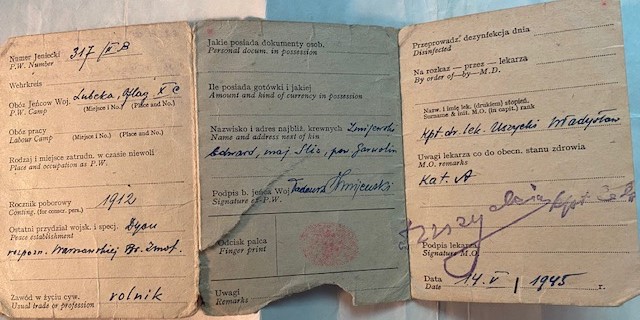 Numer Jeniecki 317/II B
P.W. Number
Wehrkreis
Obóz Jeńców Woj. Lubeka, Oflag X C
P.W. Camp (Miejsce i No.) (Place and No.)
Obóz pracy
Labour Camp (Miejsce i No.) (Place and No.)
Rodzaj i miejsce zatrudn. w czasie niewoli
Place and occupation as P.W.
Rocznik poborowy 1912
Conting. (for comer. pers.)
Ostatni przydział wojsk. i specj. Dyon
Peace establishment
rozpozn. Warszawskiej Br. Zmot.
Zawód w życiu cyw. rolnik
Usual trade or profession
Jakie posiada dokumenty osob.
Personal docum. in possession
Ile posiada gotówki i jakiej
Amount and kind of currency in possession
Nazwisko i adres najbliż. krewnych Żmijewski
Name and address next of kin
Edward, maj. pow Garwolin
Podpis b. jeńca Woj. Tadeusz Żmijewski
Signature ex-P.W.
Odcisk palca
Finger print
Uwagi
Remarks
Przeprowadź. dezynfekcja dnia
Disinfected
Na rozkaz — przez — lekarza
By order of—by—M.D.
Nazw. i imię lek. (drukiem) stopień.
Surname & init. M.O. (in capit.) rank
Kpt dr. lek. Uszycki Władysław
Uwagi lekarza co do obecn. stanu zdrowia
M.O. remarks
Kat. A
Podpis lekarza
Signature M.O.
Data 14. V 1945 r.
Date